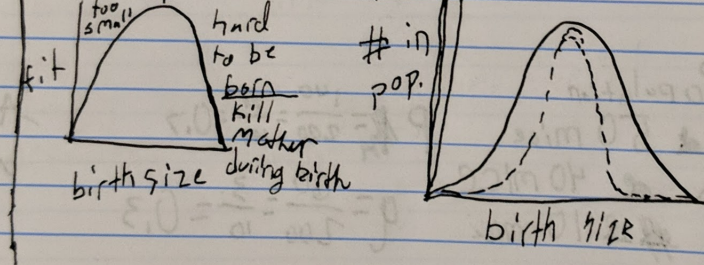 too
small
hard
to be
born
kill
mother
during birth
fit
birth size
# in
pop.
birth size